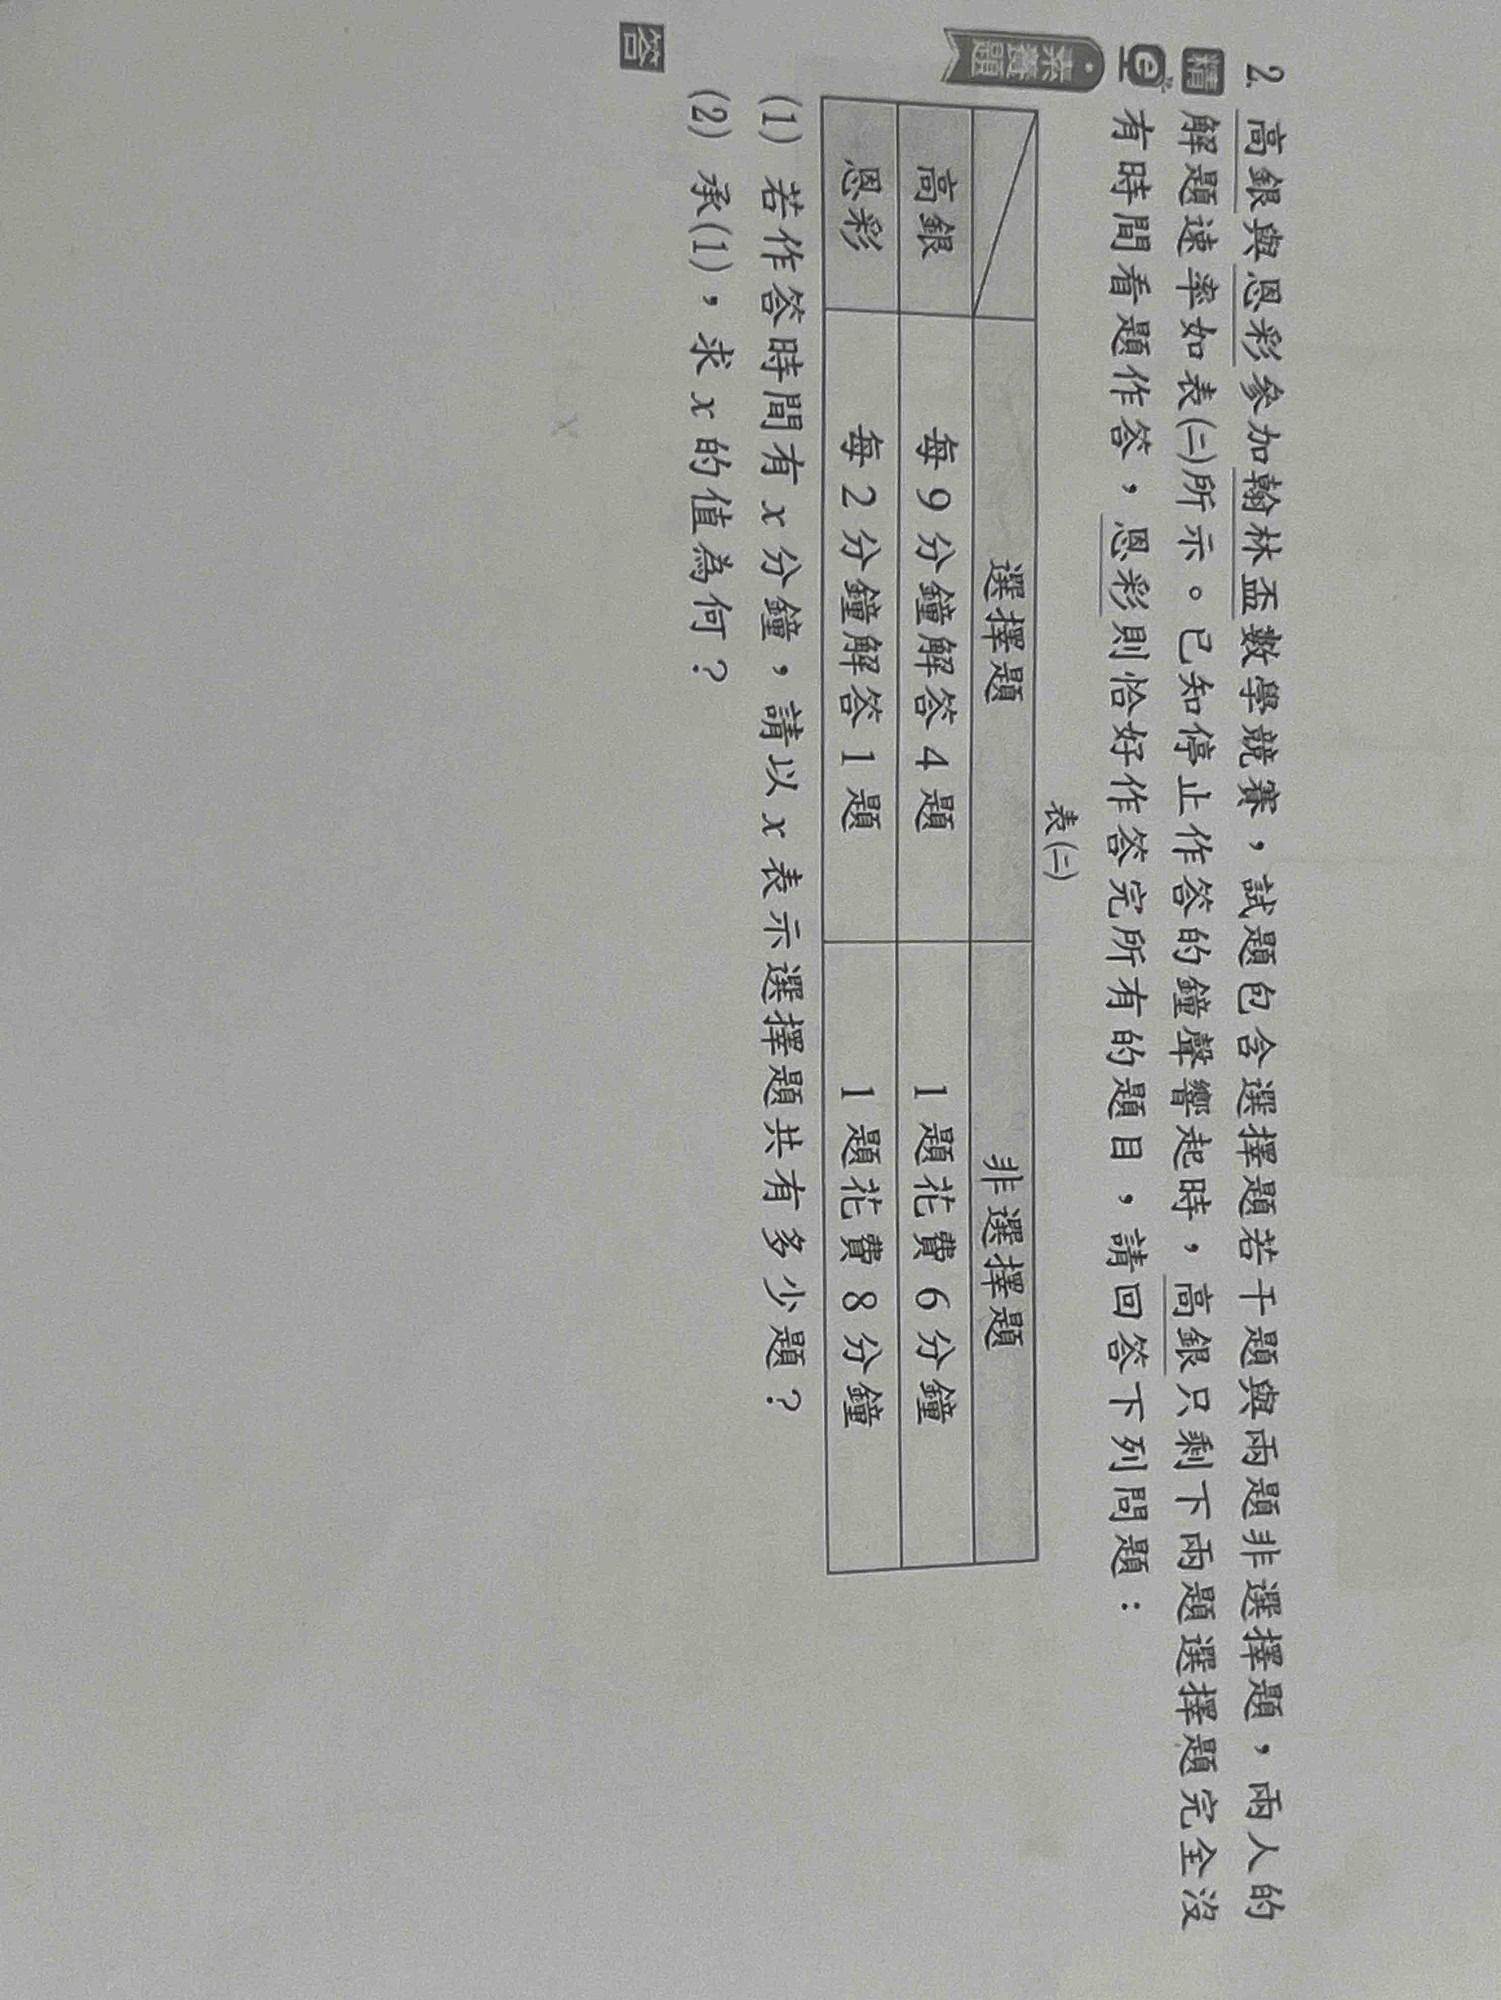 2. 高銀與恩彩參加翰林盃數學競賽,試題包含選擇題若干題與兩題非選擇題,兩人的
精 解題速率如表(二)所示。已知停止作答的鐘聲響起時,高銀只剩下兩題選擇題完全沒
e 有時間看題作答,恩彩則恰好作答完所有的題目,請回答下列問題:
素養題
表(二)
選擇題 非選擇題
高銀 每9分鐘解答4題 1題花費6分鐘
恩彩 每2分鐘解答1題 1題花費8分鐘
(1) 若作答時間有x分鐘,請以x表示選擇題共有多少題?
(2) 承(1),求x的值為何?
答